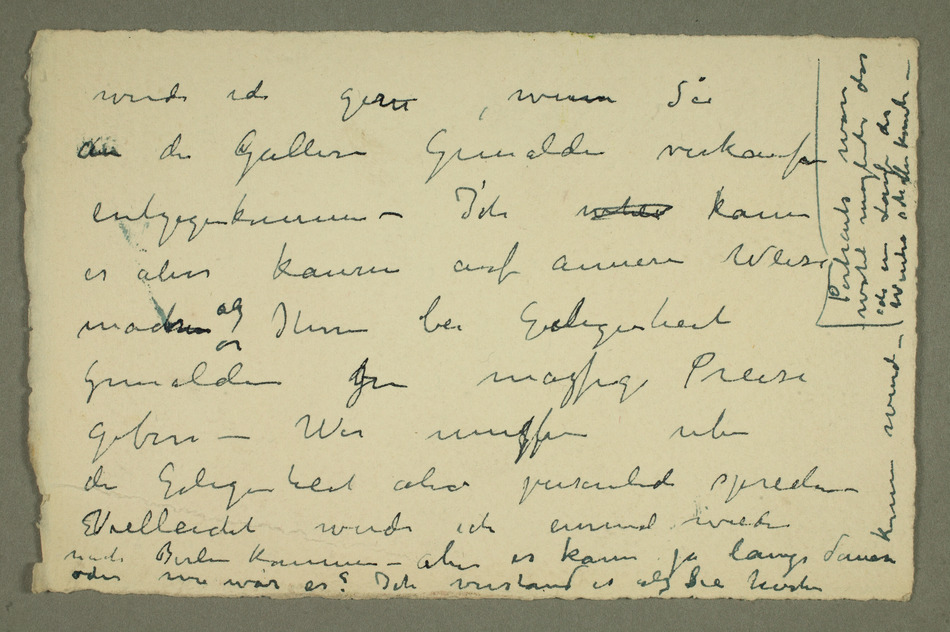 würde ich gern, wenn Sie
an der Gallerie Gemälde verkaufen
entgegenkommen – Ich kann
es aber kaum auf annere Weise
machen als Ihnen bei Gelegenheit
Gemälden mässige Preise
geben – Wir müssen über
die Gelegenheit aber persönlich sprechen
Vielleicht würde ich einmal wieder
nach Berlin kommen – aber es kann ja lange dauern
oder wie war es? Ich verstand es als Sie
kommen würde –
Portraits wäre
wohl möglich das
ich im Laufe des
Winters oder